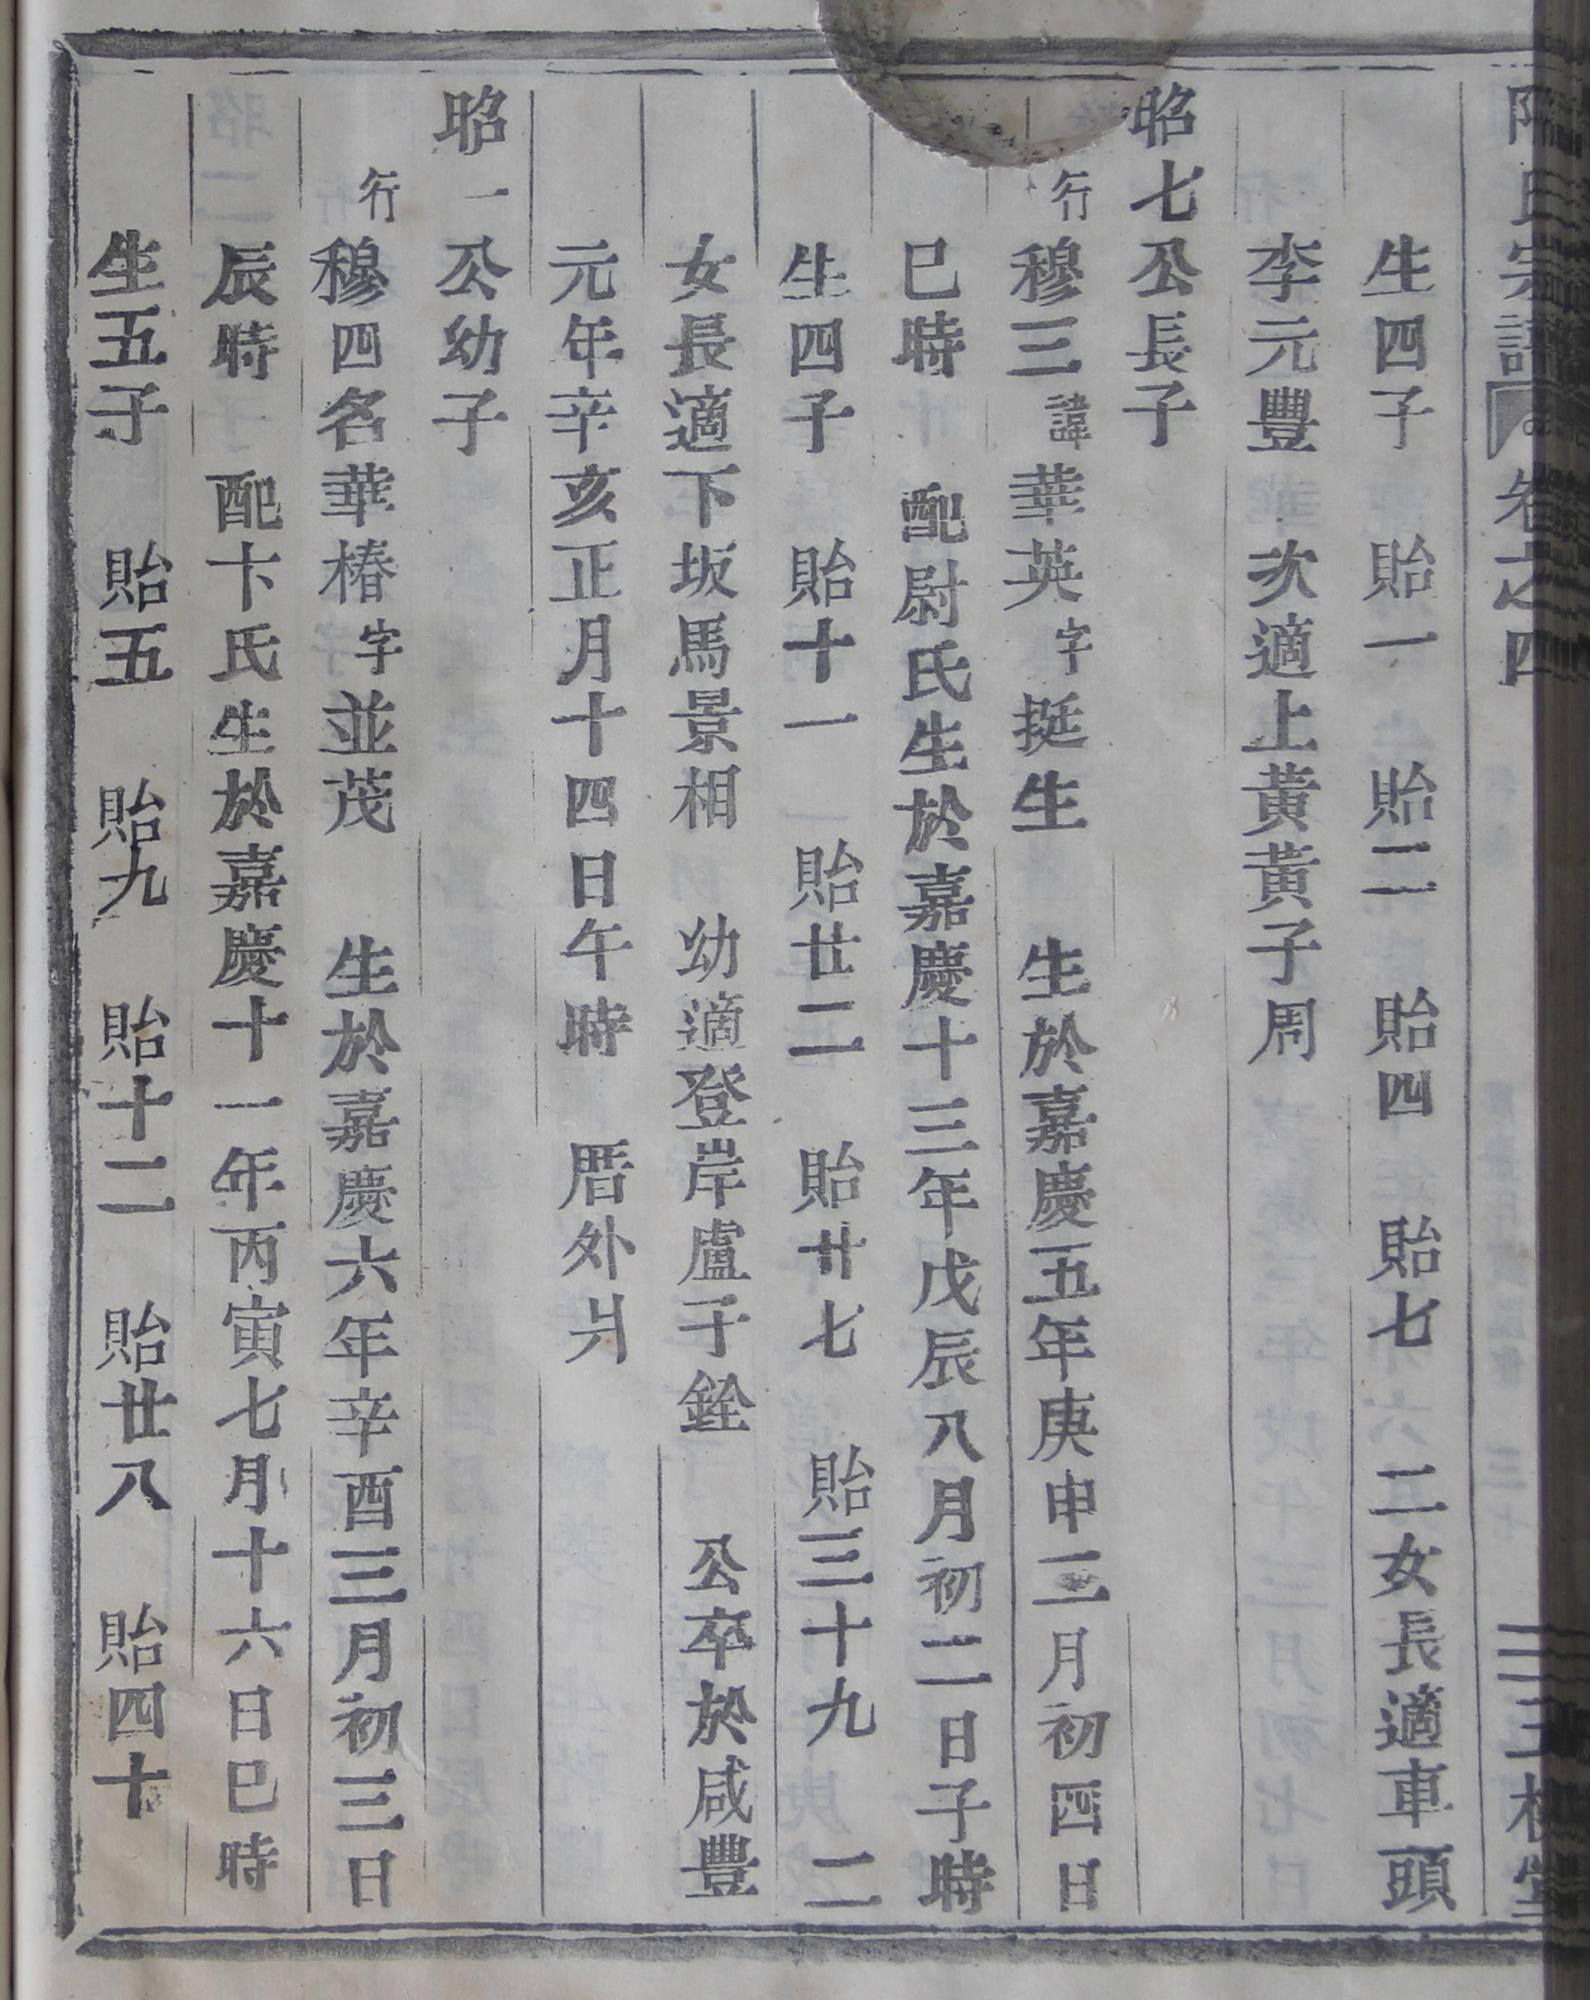 氏宗譜 卷之四 三
生四子 貽一 貽二 貽四 貽七 二女長適車頭
李元豐 次適上黃黃子周
昭七公長子
行穆三諱華英字挺生 生於嘉慶五年庚申三月初四日
巳時 配尉氏生於嘉慶十三年戊辰八月初二日子時
生四子 貽十一 貽廿二 貽廿七 貽三十九 二
女長適下坂馬景相 幼適登岸盧子銓 公卒於咸豐
元年辛亥正月十四日午時 厝外爿
昭一公幼子
行穆四名華椿字並茂 生於嘉慶六年辛酉三月初三日
辰時 配卞氏生於嘉慶十一年丙寅七月十六日巳時
生五子 貽五 貽九 貽十二 貽廿八 貽四十